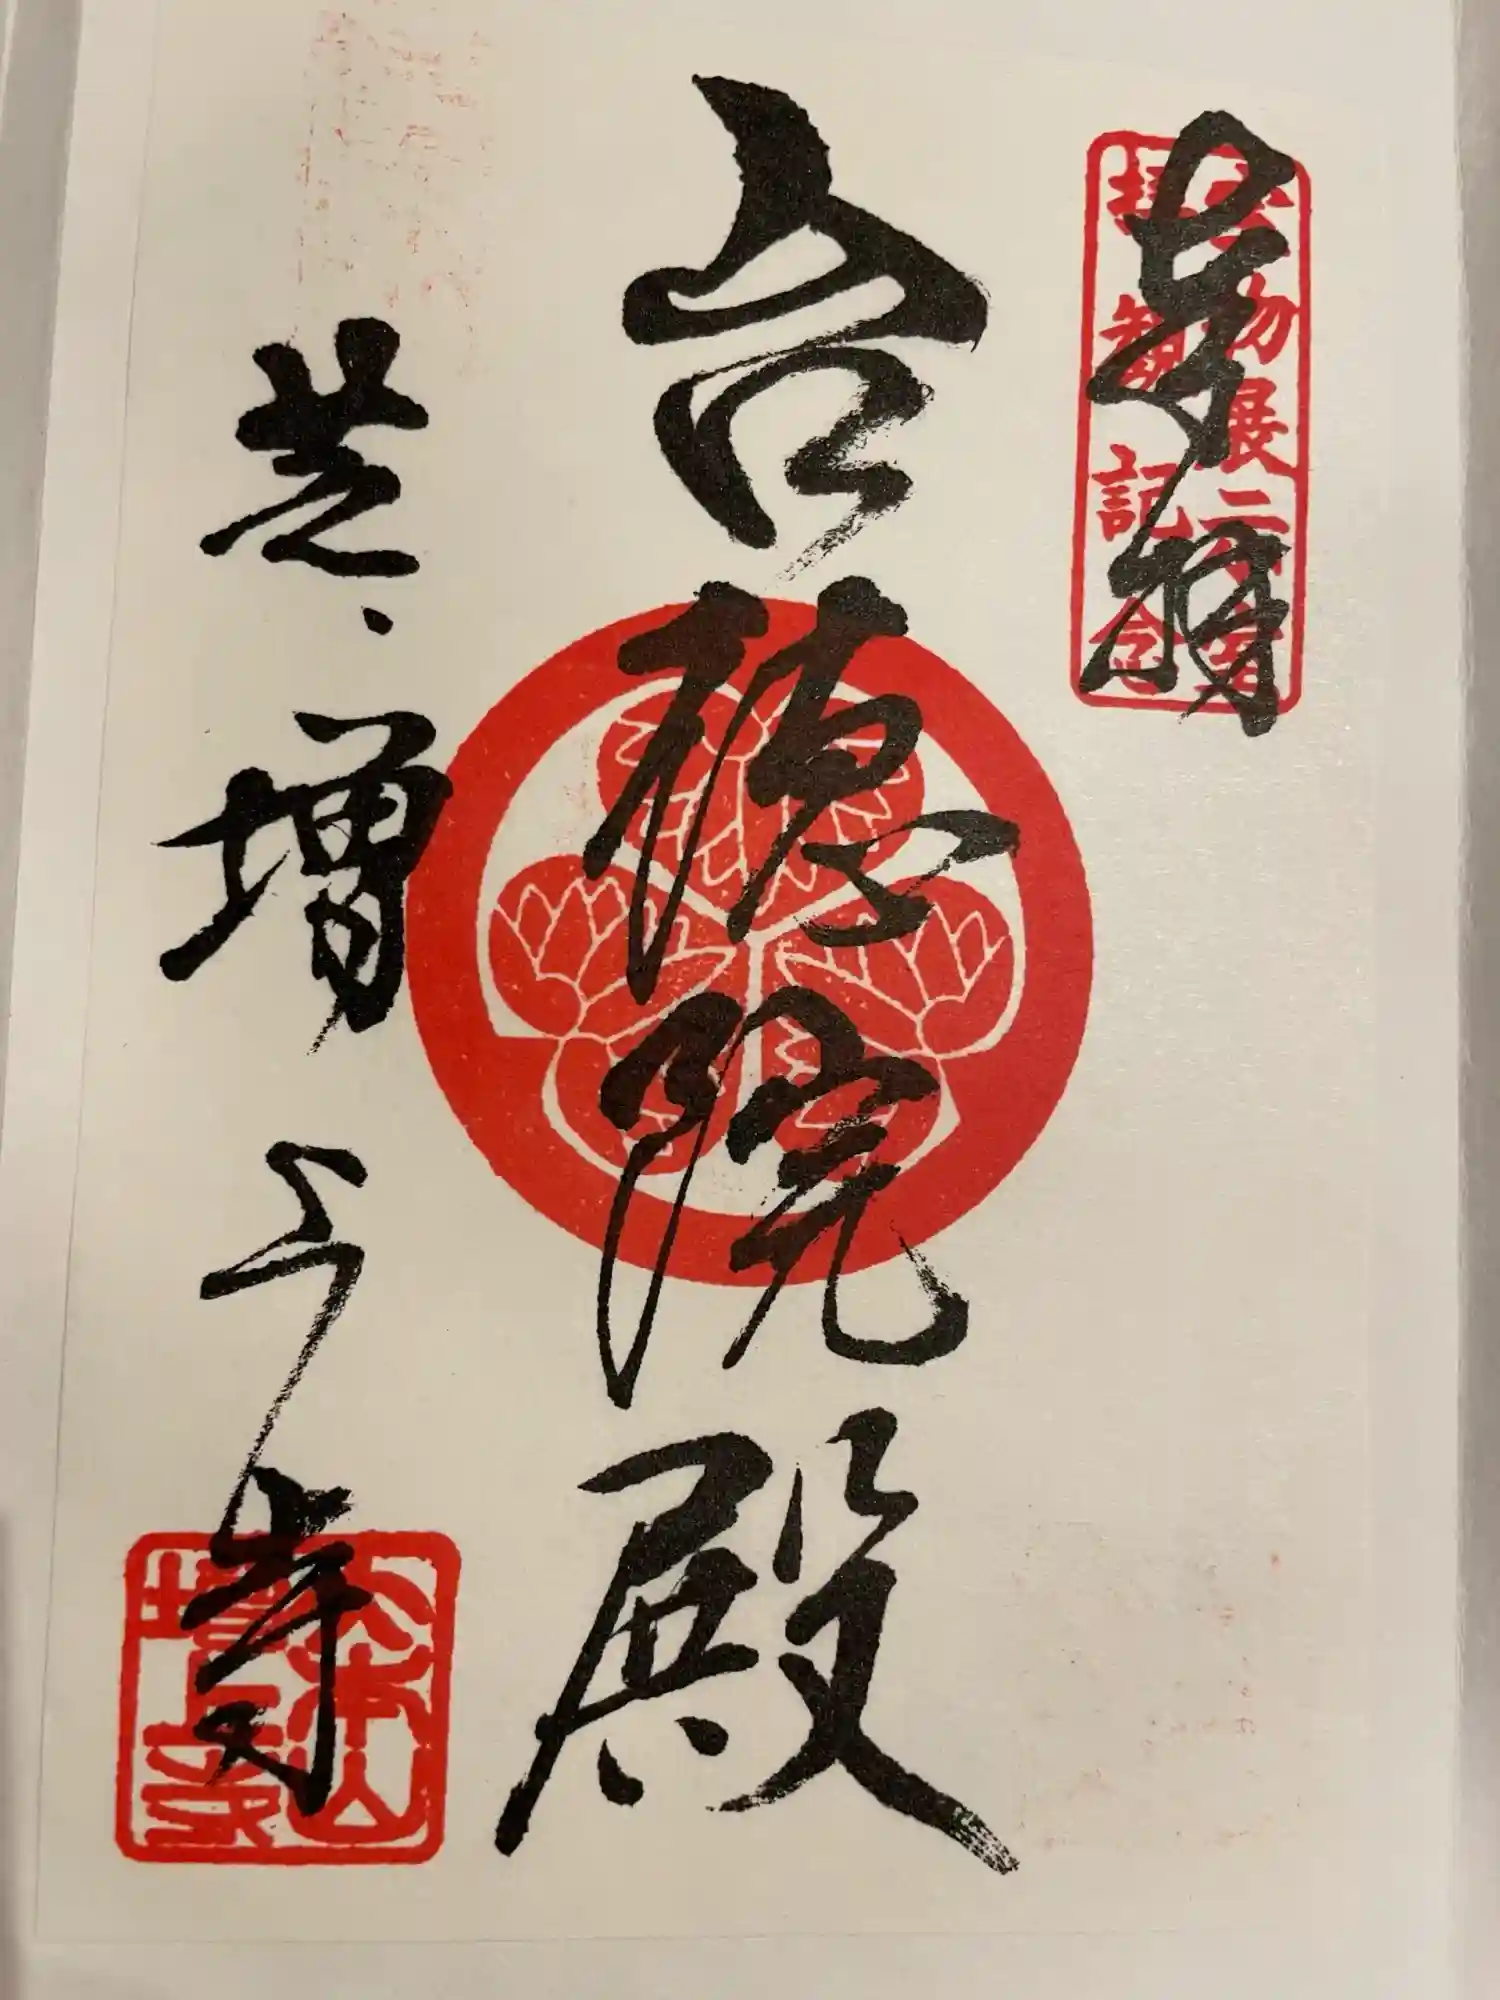 奉拝
宝物展
拝観記念
台徳院殿
芝・増上寺
大本山
増上寺